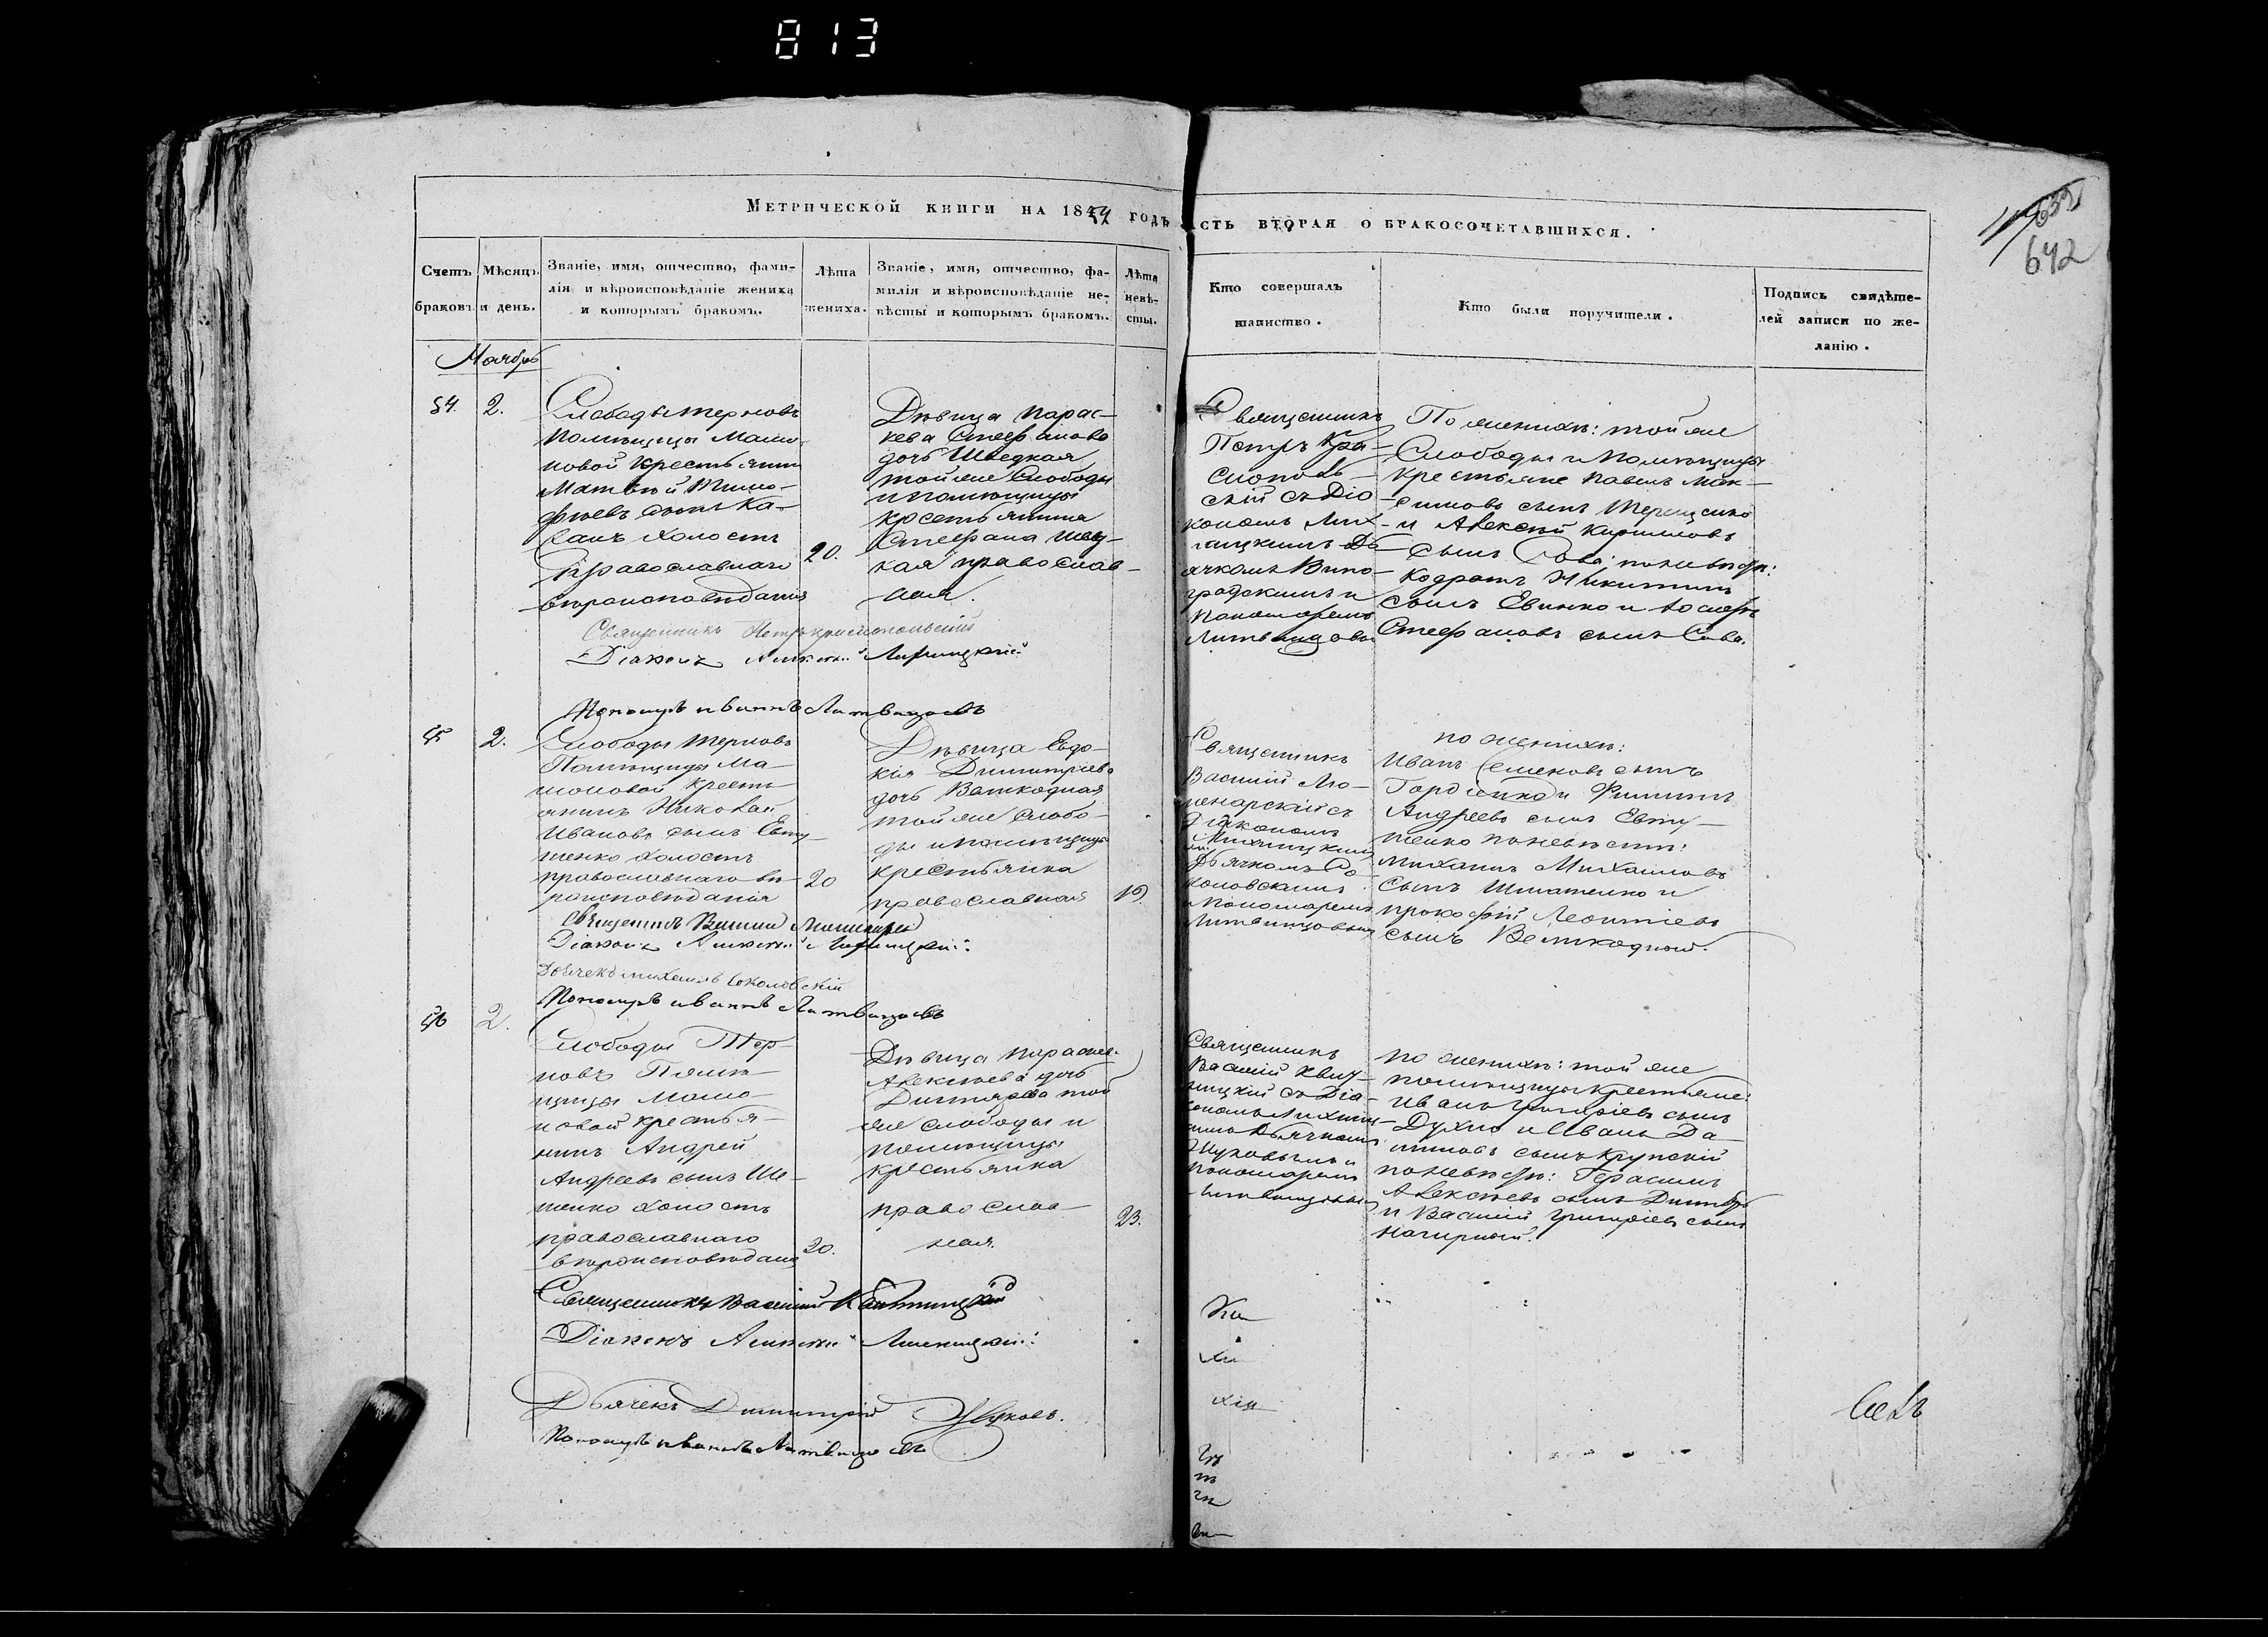 813
МЕТРИЧЕСКОЙ КНИГИ НА 1854 ГОДЪ
СТЬ ВТОРАЯ О БРАКОСОЧЕТАВШИХСЯ.
642
Счетъ
браковъ
Мѣсяцъ
и день.
Званіе, имя, отчество, фами-
лія и вѣроисповѣданіе жениха
и которымъ бракомъ.
Лѣта
жениха.
Званіе, имя, отчество, фа-
милія и вѣроисповѣданіе не-
вѣсты и которымъ бракомъ.
Лѣта
невѣ-
сты.
Кто совершалъ
таинство.
Кто были поручители.
Подпись свидѣте-
лей записи по же-
ланію.
Ноябрь
54.
2.
Слободы Терновъ
Помѣщицы Машо-
новой крестьянинъ
Матвѣй Тимо-
фѣевъ сынъ Ка-
холостъ
Православнаго
вѣроисповѣданія
20.
Дѣвица Парас-
кева Стефанова
дочь Шведкая
той же Слободы
и помѣщицы
крестьянина
Стефана Швед-
кая православ-
ная.
Священникъ
Петръ Кра-
снополь-
скій съ Діа-
кономъ
Дья-
чкомъ Вино-
градскимъ и
Пономаремъ
По женихѣ: той же
Слободы и помѣщицы
крестьяне Павелъ Мак-
симовъ сынъ Терещенко
и Алексѣй Кириловъ
сынъ Сова; по невѣстѣ:
Кодратъ Никитинъ
сынъ Евинко и Іосифъ
Стефановъ сынъ Сова.
Священникъ Петръ Краснопольскій
Діаконъ Алексѣй
Пономарь Иванъ Литвинцовъ
55
2.
Слободы Терновъ
Помѣщицы Ма-
шоновой кресть-
янинъ Николай
Ивановъ сынъ Евту-
шенко холостъ
православнаго вѣ-
роисповѣданія
20
Дѣвица Евдо-
кія Димитріева
дочь Великодная
той же Слобо-
ды и помѣщицы
крестьянка
православная
19
Священникъ
Василій
съ
Діакономъ
Дьячкомъ Со-
коловскимъ
и Пономаремъ
Литвинцовымъ
по женихѣ:
Иванъ Семеновъ сынъ
Гордіенко и Филипъ
Андреевъ сынъ Евту-
шенко по невѣстѣ:
Михаилъ Михаиловъ
сынъ Шпатенко и
Прокофій Леонтіевъ
сынъ Великодный.
Священникъ Василій
Діаконъ Алексѣй
Дьячекъ Михаилъ Соколовскій
Пономарь Иванъ Литвинцовъ
56
2.
Слободы Тер-
новъ Помѣ-
щицы Машо-
новой крестья-
нинъ Андрей
Андреевъ сынъ Ше-
шенко холостъ
православнаго
вѣроисповѣданія
20.
Дѣвица Параскев.
Алексѣева дочь
той
же слободы и
помѣщицы
крестьянка
православ-
ная.
23.
Священникъ
Василій Квит-
ницкій съ Діа-
кономъ
Дьячкомъ
Жуковымъ и
пономаремъ
Литвинцовымъ
по женихѣ: той же
помѣщицы крестьяне:
Иванъ Григоріевъ сынъ
Духно и Иванъ Да-
ниловъ сынъ Крупскій
по невѣстѣ: Герасимъ
Алексѣевъ сынъ
и Василій Григоріевъ сынъ
Нагирный.
Священникъ Василій Квитницкій
Діаконъ Алексѣй
Дьячекъ Димитрій Жуковъ.
Пономарь Иванъ Литвинцовъ